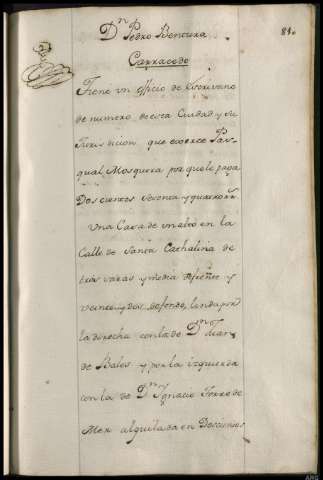 Dn Pedro Bentura
81.
Carracedo
Tiene un officio de Escrivano
de numero de esta Ciudad y su
Jurisdicion que exerce Pas-
qual Mosquera por que le paga
Doscientos setenta y quattro rs
Una Casa de un alto en la
Calle de Santa Cathalina de
tres varas y media de frente y
veinte y dos de fondo, linda por
la direcha con la de Dn Juan
de Bales y por la izquierda
con la de Dn Ygnacio Ferro de
Mex alquilada en Doscientos
ARG